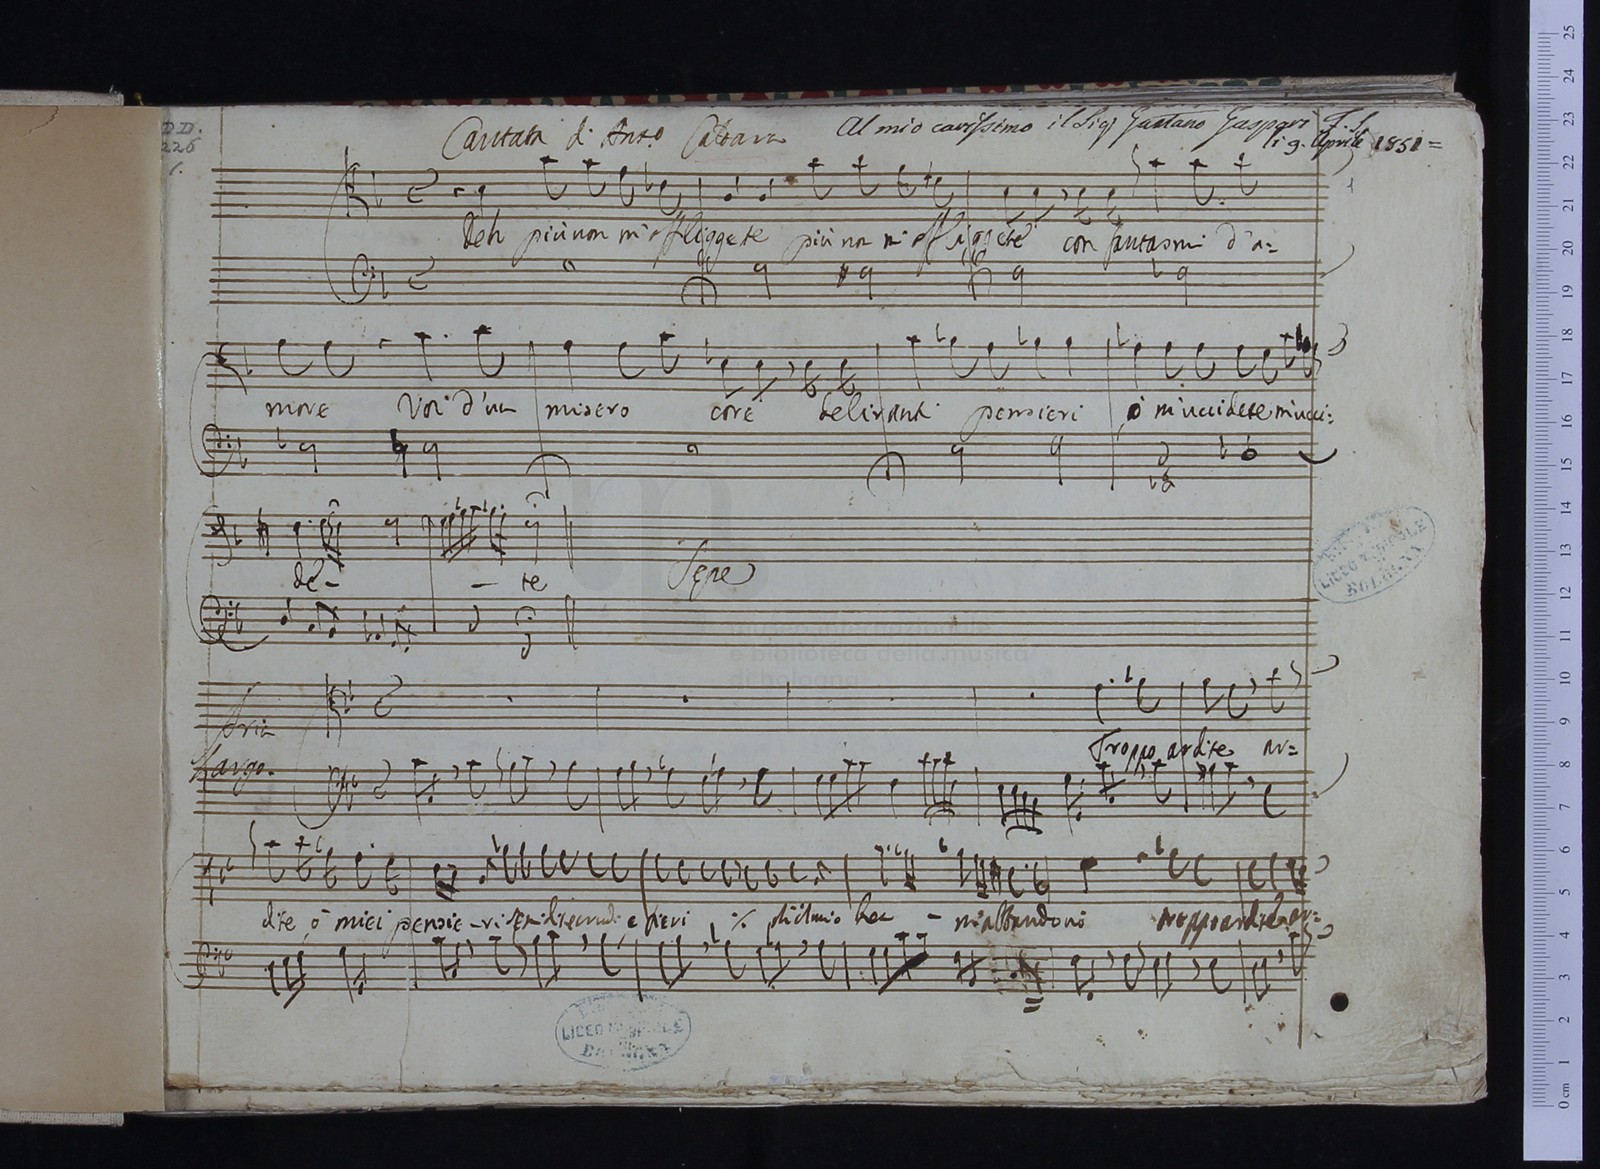 DD.
226
1.
Cantata di Anto. Caldara
Al mio carissimo il Sigr Gaetano Gaspari F. S.
i 9. Aprile 1851 =
1
Deh più non m'affliggete più non m'affliggete con fantasmi d'a=
more Voi d'un misero core deliranti pensieri ò m'uccidete m'ucci=
de- - te
Segue
Aria
Largo.
Troppo ardite ar=
dite ò miei pensieri e fieri ·/· - m'abbandoni troppo ardite ar=
LICEO MUSICALE
BOLOGNA
LICEO MUSICALE
BOLOGNA
museo internazionale
e biblioteca della musica
di bologna
25
24
23
22
21
20
19
18
17
16
15
14
13
12
11
10
9
8
7
6
5
4
3
2
1
0 cm